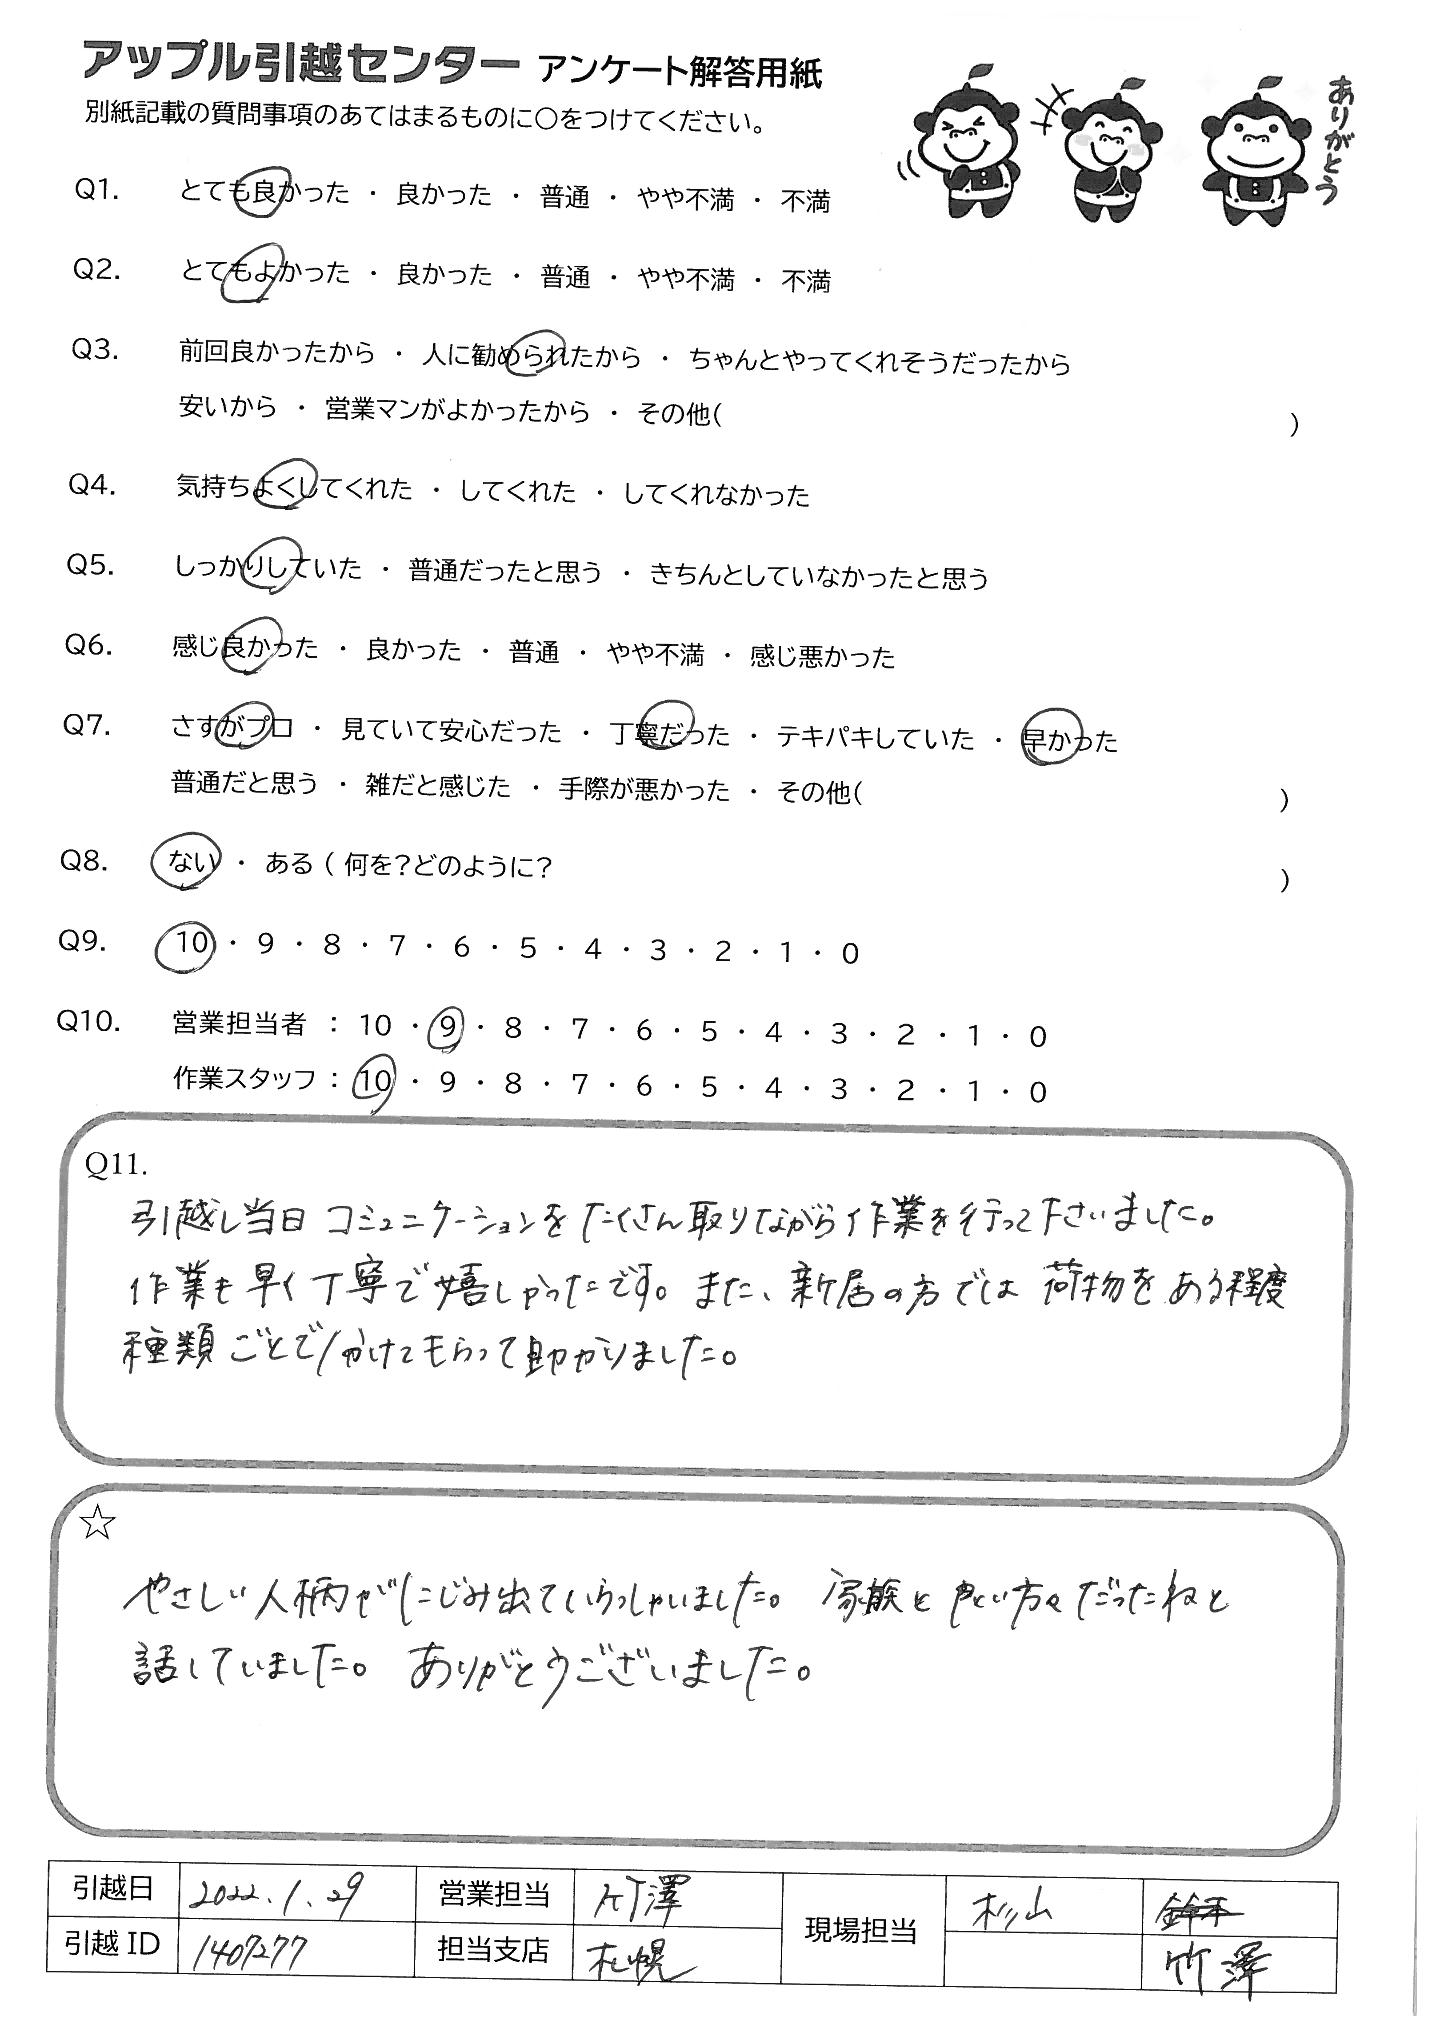 アップル引越センター アンケート解答用紙
別紙記載の質問事項のあてはまるものに○をつけてください。
ありがとう
Q1. とても良かった ・ 良かった ・ 普通 ・ やや不満 ・ 不満
Q2. とてもよかった ・ 良かった ・ 普通 ・ やや不満 ・ 不満
Q3. 前回良かったから ・ 人に勧められたから ・ ちゃんとやってくれそうだったから
安いから ・ 営業マンがよかったから ・ その他( )
Q4. 気持ちよくしてくれた ・ してくれた ・ してくれなかった
Q5. しっかりしていた ・ 普通だったと思う ・ きちんとしていなかったと思う
Q6. 感じ良かった ・ 良かった ・ 普通 ・ やや不満 ・ 感じ悪かった
Q7. さすがプロ ・ 見ていて安心だった ・ 丁寧だった ・ テキパキしていた ・ 早かった
普通だと思う ・ 雑だと感じた ・ 手際が悪かった ・ その他( )
Q8. ない ・ ある ( 何を?どのように? )
Q9. 10 ・ 9 ・ 8 ・ 7 ・ 6 ・ 5 ・ 4 ・ 3 ・ 2 ・ 1 ・ 0
Q10. 営業担当者 : 10 ・ 9 ・ 8 ・ 7 ・ 6 ・ 5 ・ 4 ・ 3 ・ 2 ・ 1 ・ 0
作業スタッフ : 10 ・ 9 ・ 8 ・ 7 ・ 6 ・ 5 ・ 4 ・ 3 ・ 2 ・ 1 ・ 0
Q11.
引越し当日コミュニケーションをたくさん取りながら作業を行って下さいました。
作業も早く丁寧で嬉しかったです。また、新居の方では荷物をある程度
種類ごとで分けてもらって助かりました。
☆
やさしい人柄がにじみ出ていらっしゃいました。家族と良い方々だったねと
話していました。ありがとうございました。
引越日 2022.1.29 営業担当 竹澤 現場担当 杉山 鈴木
引越ID 1407277 担当支店 札幌 竹澤